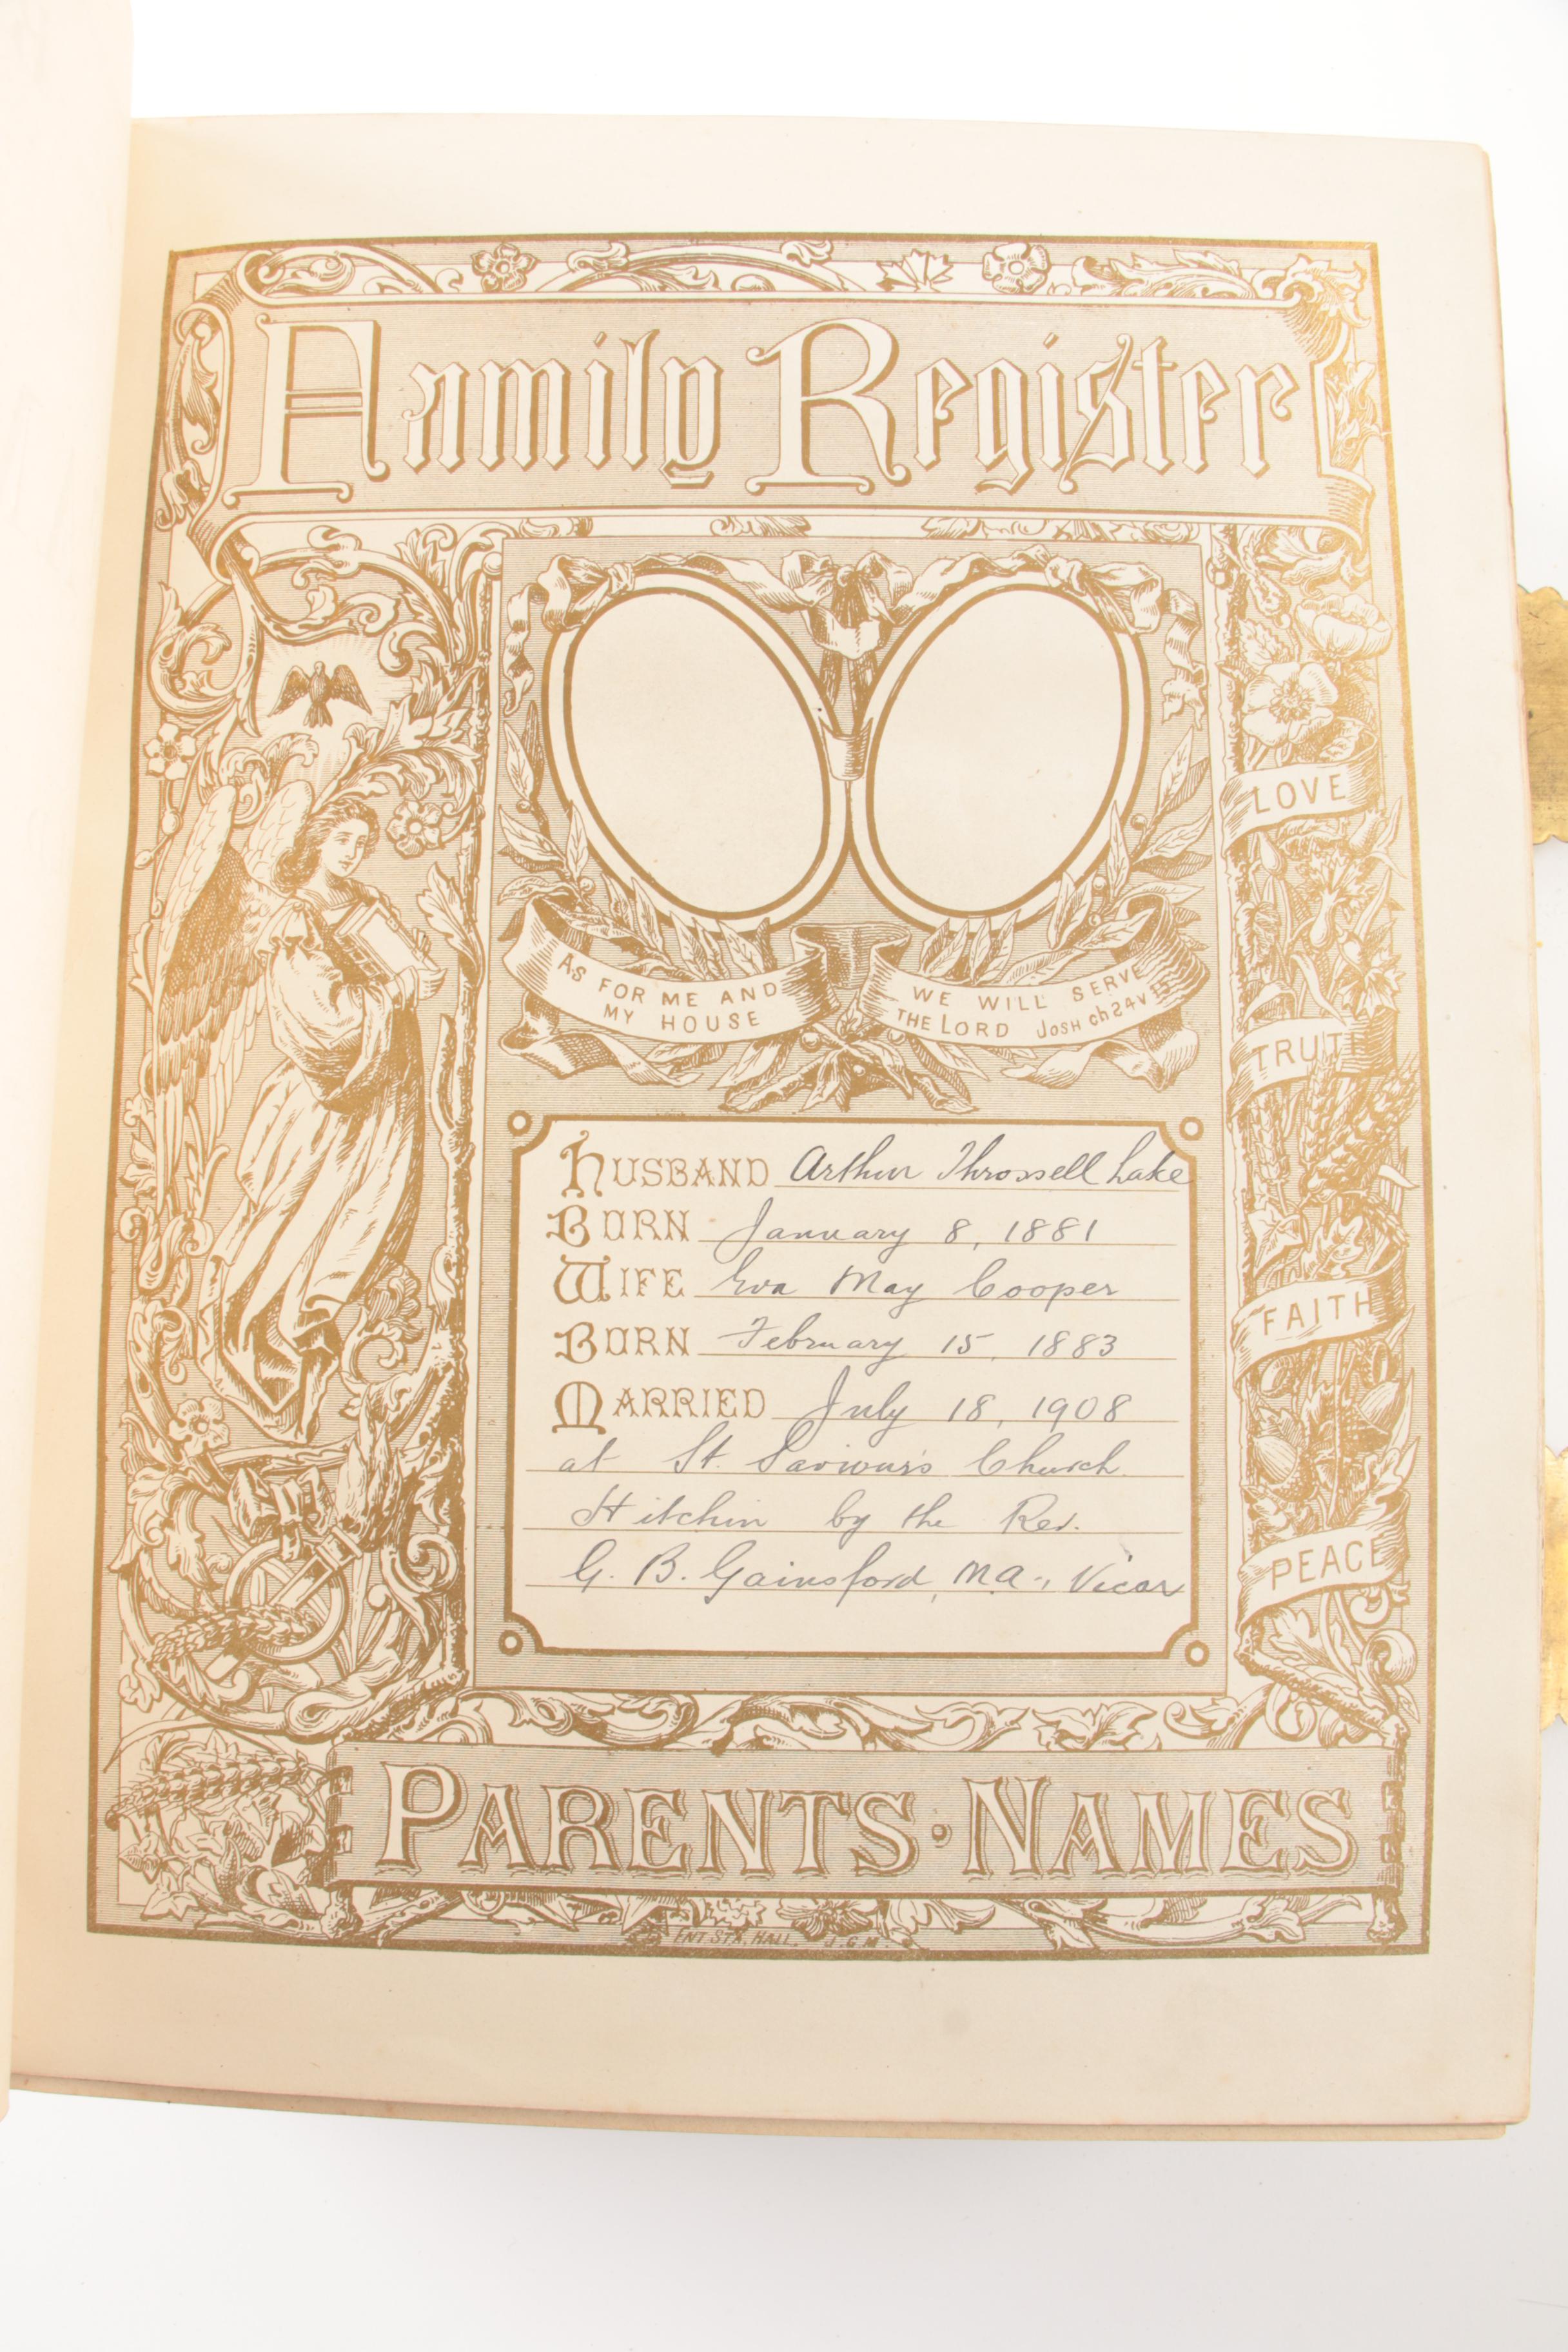 Family Register
AS FOR ME AND
MY HOUSE
WE WILL SERVE
THE LORD JOSH ch 24 v 15
LOVE
TRUTH
FAITH
PEACE
HUSBAND Arthur Throssell Lake
BORN January 8, 1881
WIFE Eva May Cooper
BORN February 15, 1883
MARRIED July 18, 1908
at St. Saviour's Church
Hitchin by the Rev.
G. B. Gainsford, M.A., Vicar
PARENTS · NAMES
ENT. STA. HALL. J.G.M.